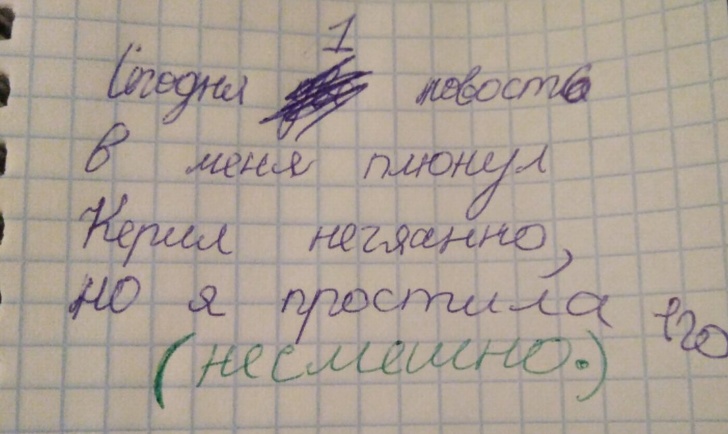 Согодня 1 новость
В меня плюнул
Керил негяанно,
но я простила его
(несмешно.)